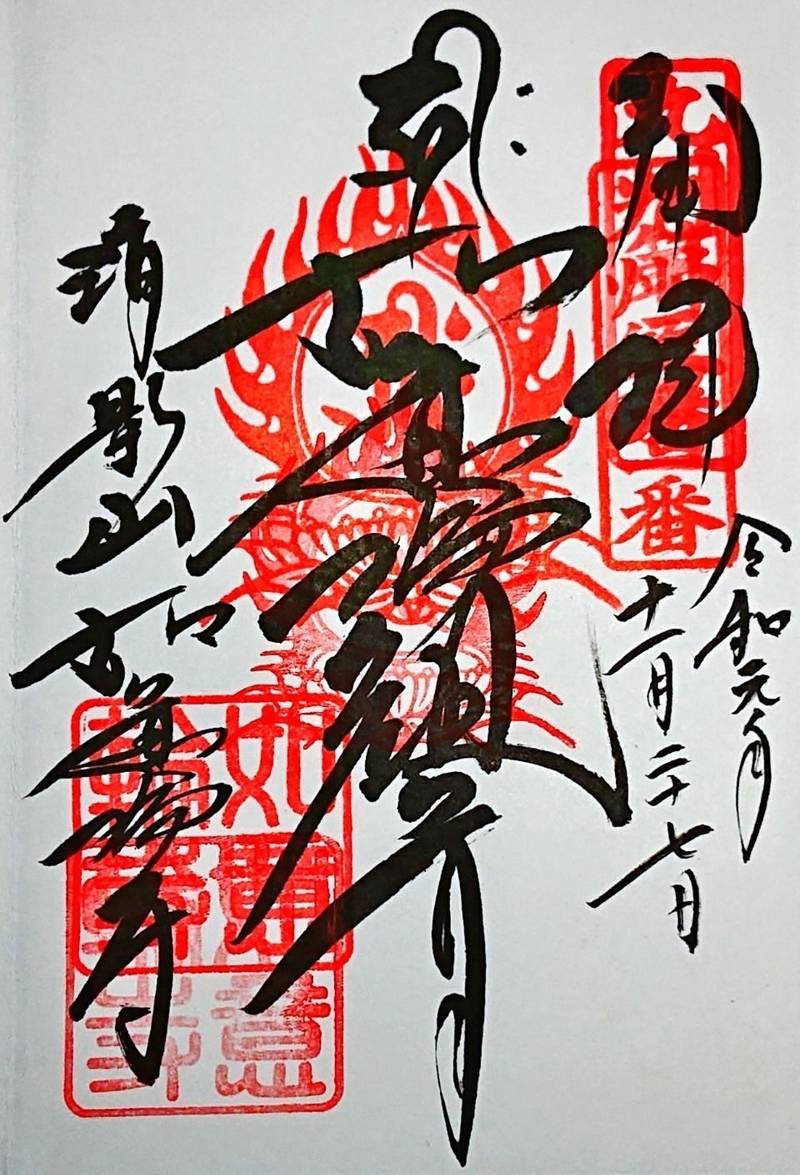 奉拝
令和元年
十一月二十七日
番
如意輪観音
清影山如意輪寺
如意輪寺